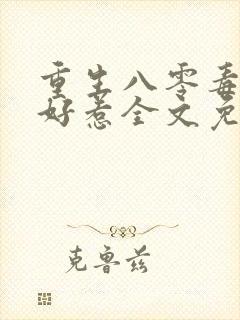 重生八零毒
好惹全文免
克鲁兹